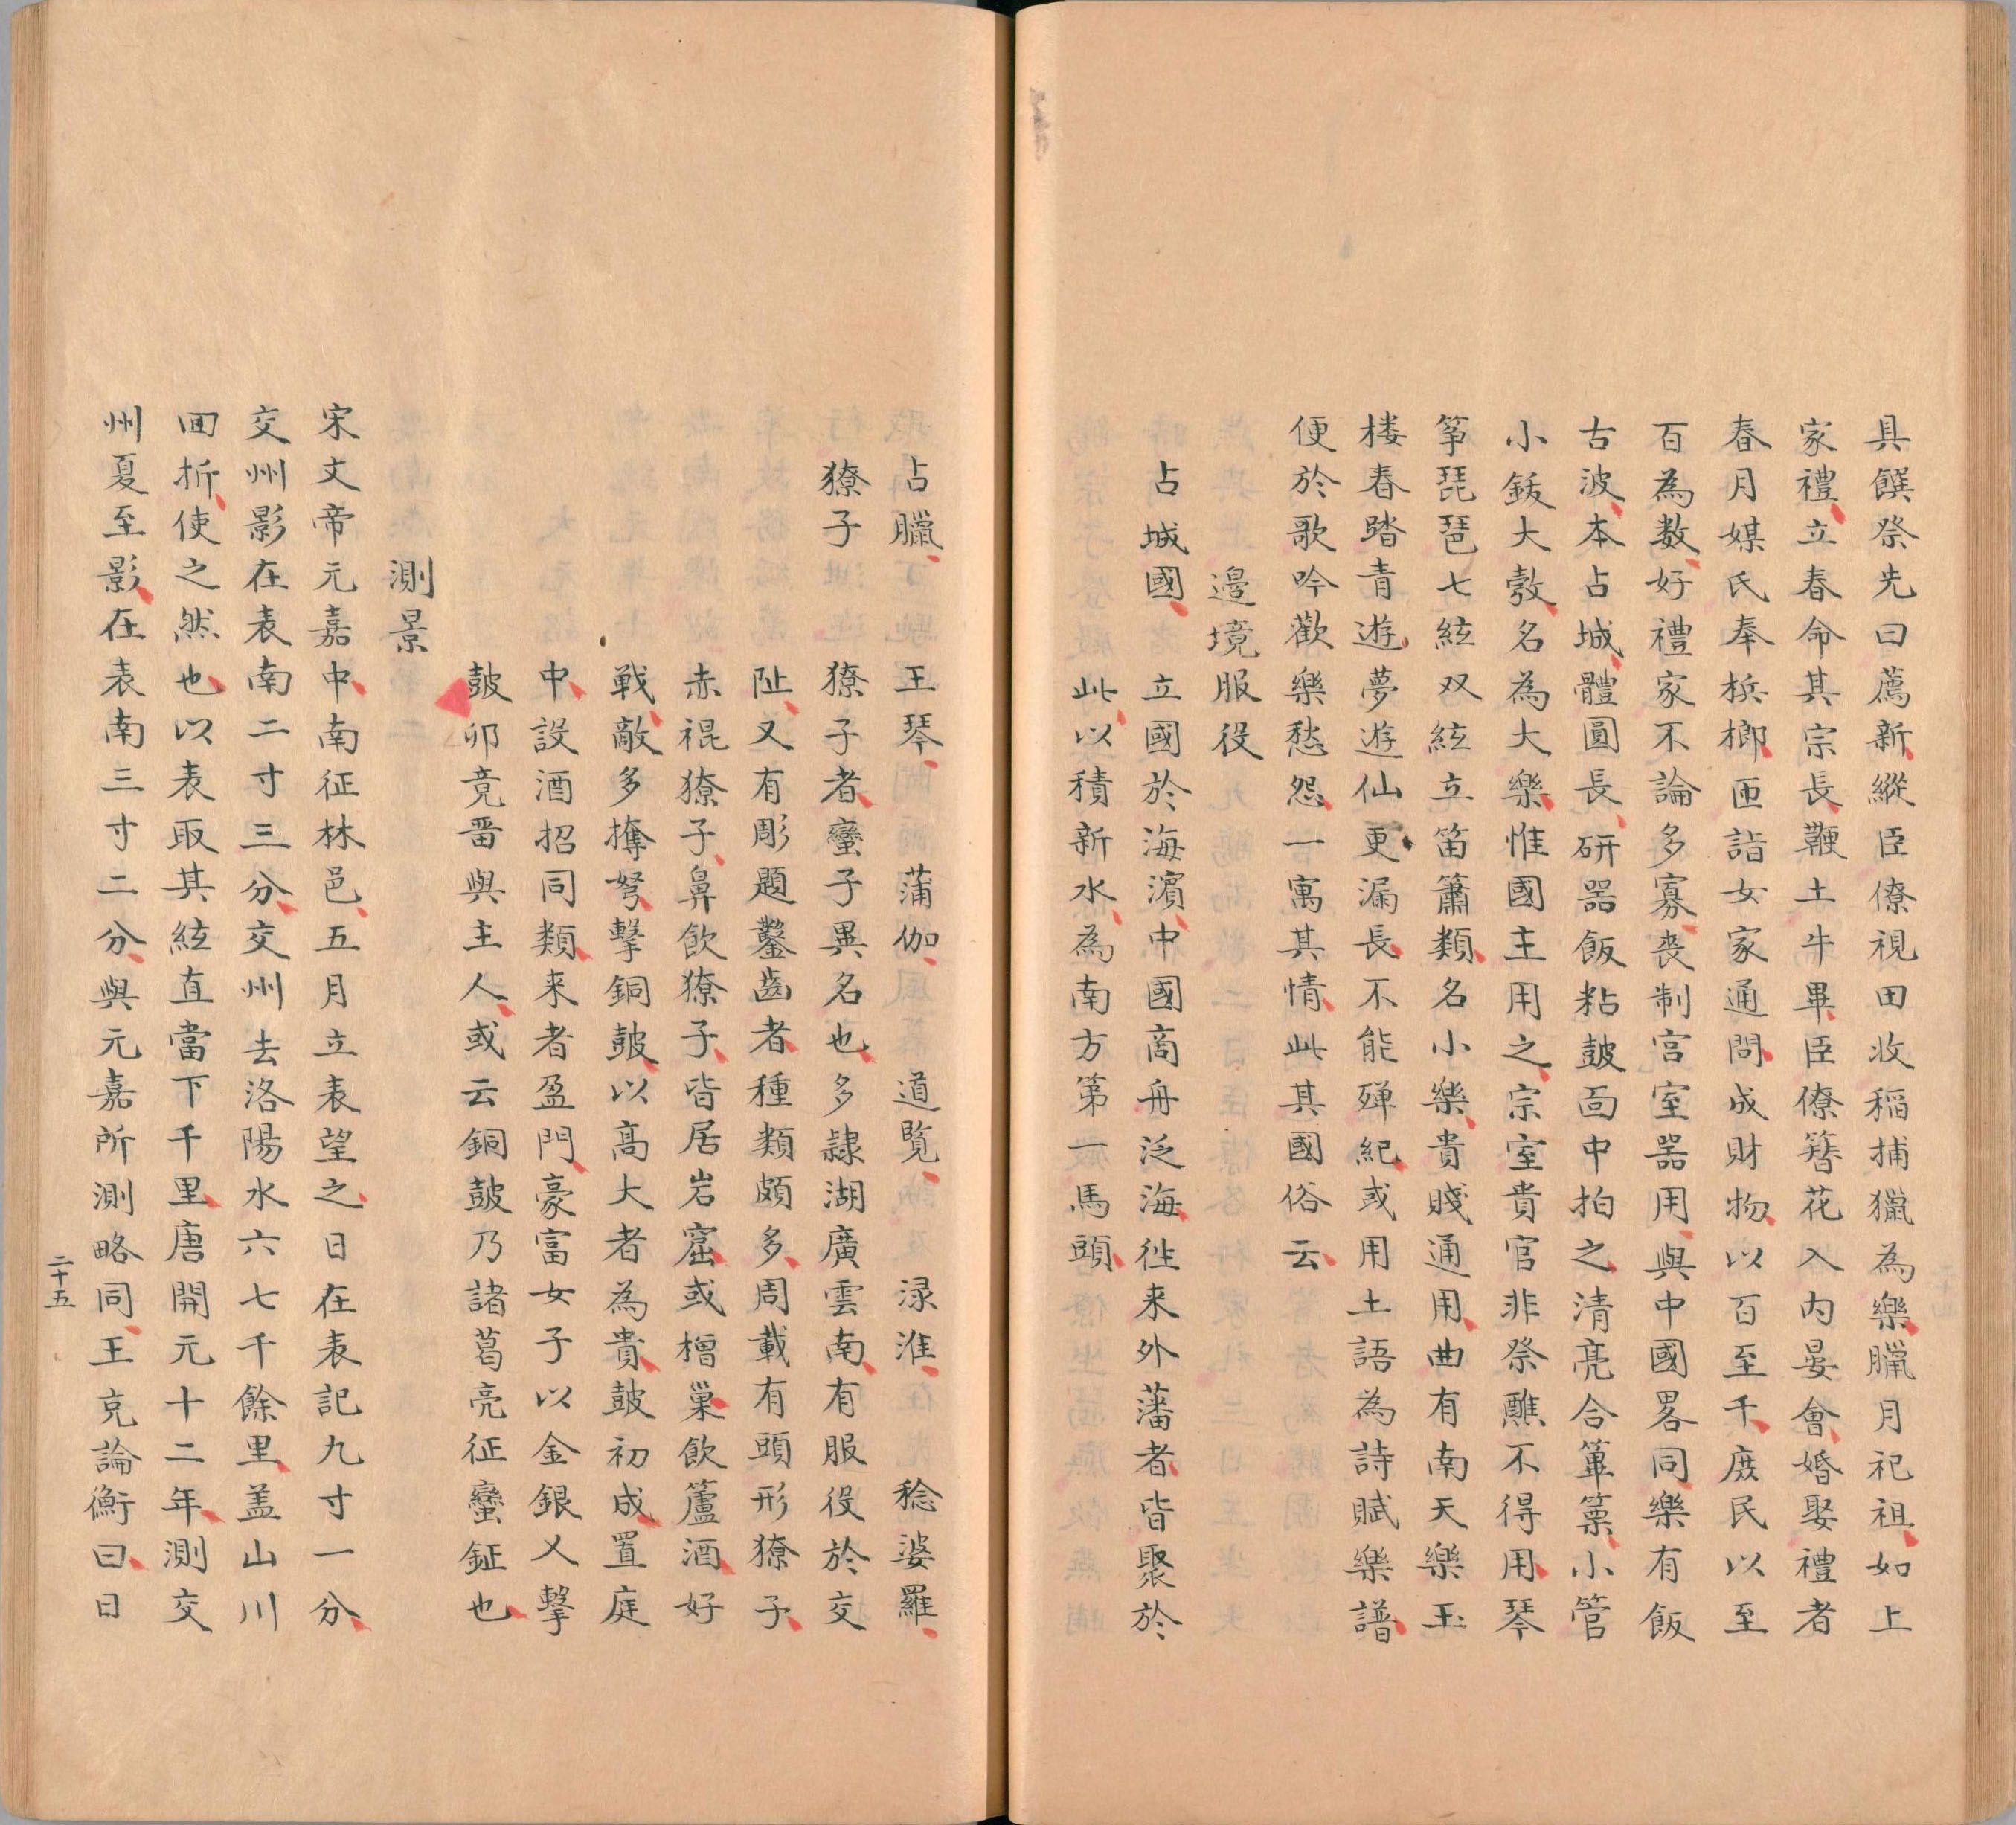 具饌祭先曰薦新縱臣僚視田收稻捕獵為樂臘月祀祖如上
家禮立春命其宗長鞭土牛畢臣僚簪花入内晏會婚娶禮者
春月媒氏奉梹榔匝詣女家通問成財物以百至千庻民以至
百為数好禮家不論多寡丧制宫室噐用與中國畧同樂有飯
古波本占城體圓長研噐飯粘皷面中拍之清亮合篳篥小管
小鈸大㪣名為大樂惟國主用之宗室貴官非祭醮不得用琴
筝琵琶七絃双絃立笛簫類名小樂貴賤通用曲有南天樂玉
楼春踏青遊夢遊仙更漏長不能殫紀或用土語為詩賦樂譜
便於歌吟歡樂愁怨一寓其情此其國俗云
邉境服役
占城國 立國於海濵中國商舟泛海徃来外藩者皆聚於
此以積新水為南方第一馬頭
占臘 王琴 蒲伽 道覧 渌淮 稔婆羅
獠子 獠子者蠻子異名也多隷湖廣雲南有服役於交
阯又有彫題鑿齒者種類頗多周載有頭形獠子
赤裩獠子鼻飲獠子皆居岩窟或橧巢飲蘆酒好
戦敵多㩴弩擊銅皷以髙大者為貴皷初成置庭
中設酒招同類来者盈門豪富女子以金銀乂擊
皷卯竟畨與主人或云銅皷乃諸葛亮征蠻鉦也
測景
宋文帝元嘉中南征林邑五月立表望之日在表記九寸一分
交州影在表南二寸三分交州去洛陽水六七千餘里盖山川
囬折使之然也以表取其絃直當下千里唐開元十二年測交
州夏至影在表南三寸二分與元嘉所測略同王充論衡曰日
二十五